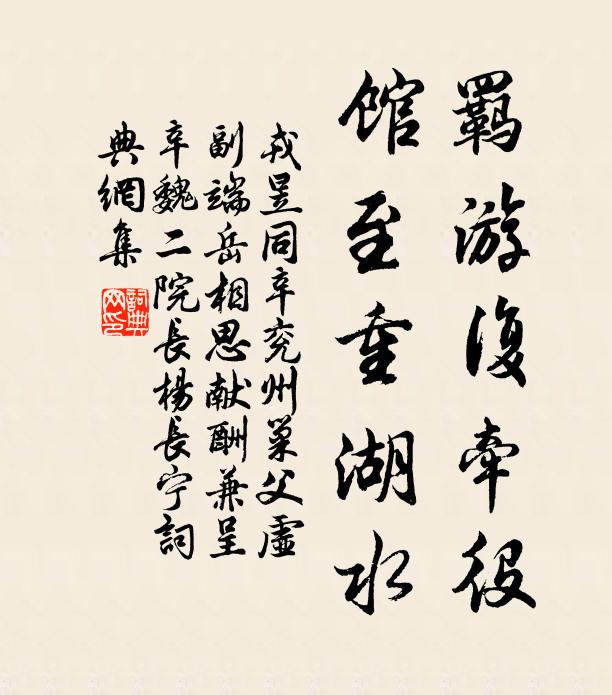 羈游復牽役
館至重湖水
戎昱同辛兖州巢父虛
副端岳相思献酬兼呈
辛魏二院長楊長宁詞
典網集
詞典
网印